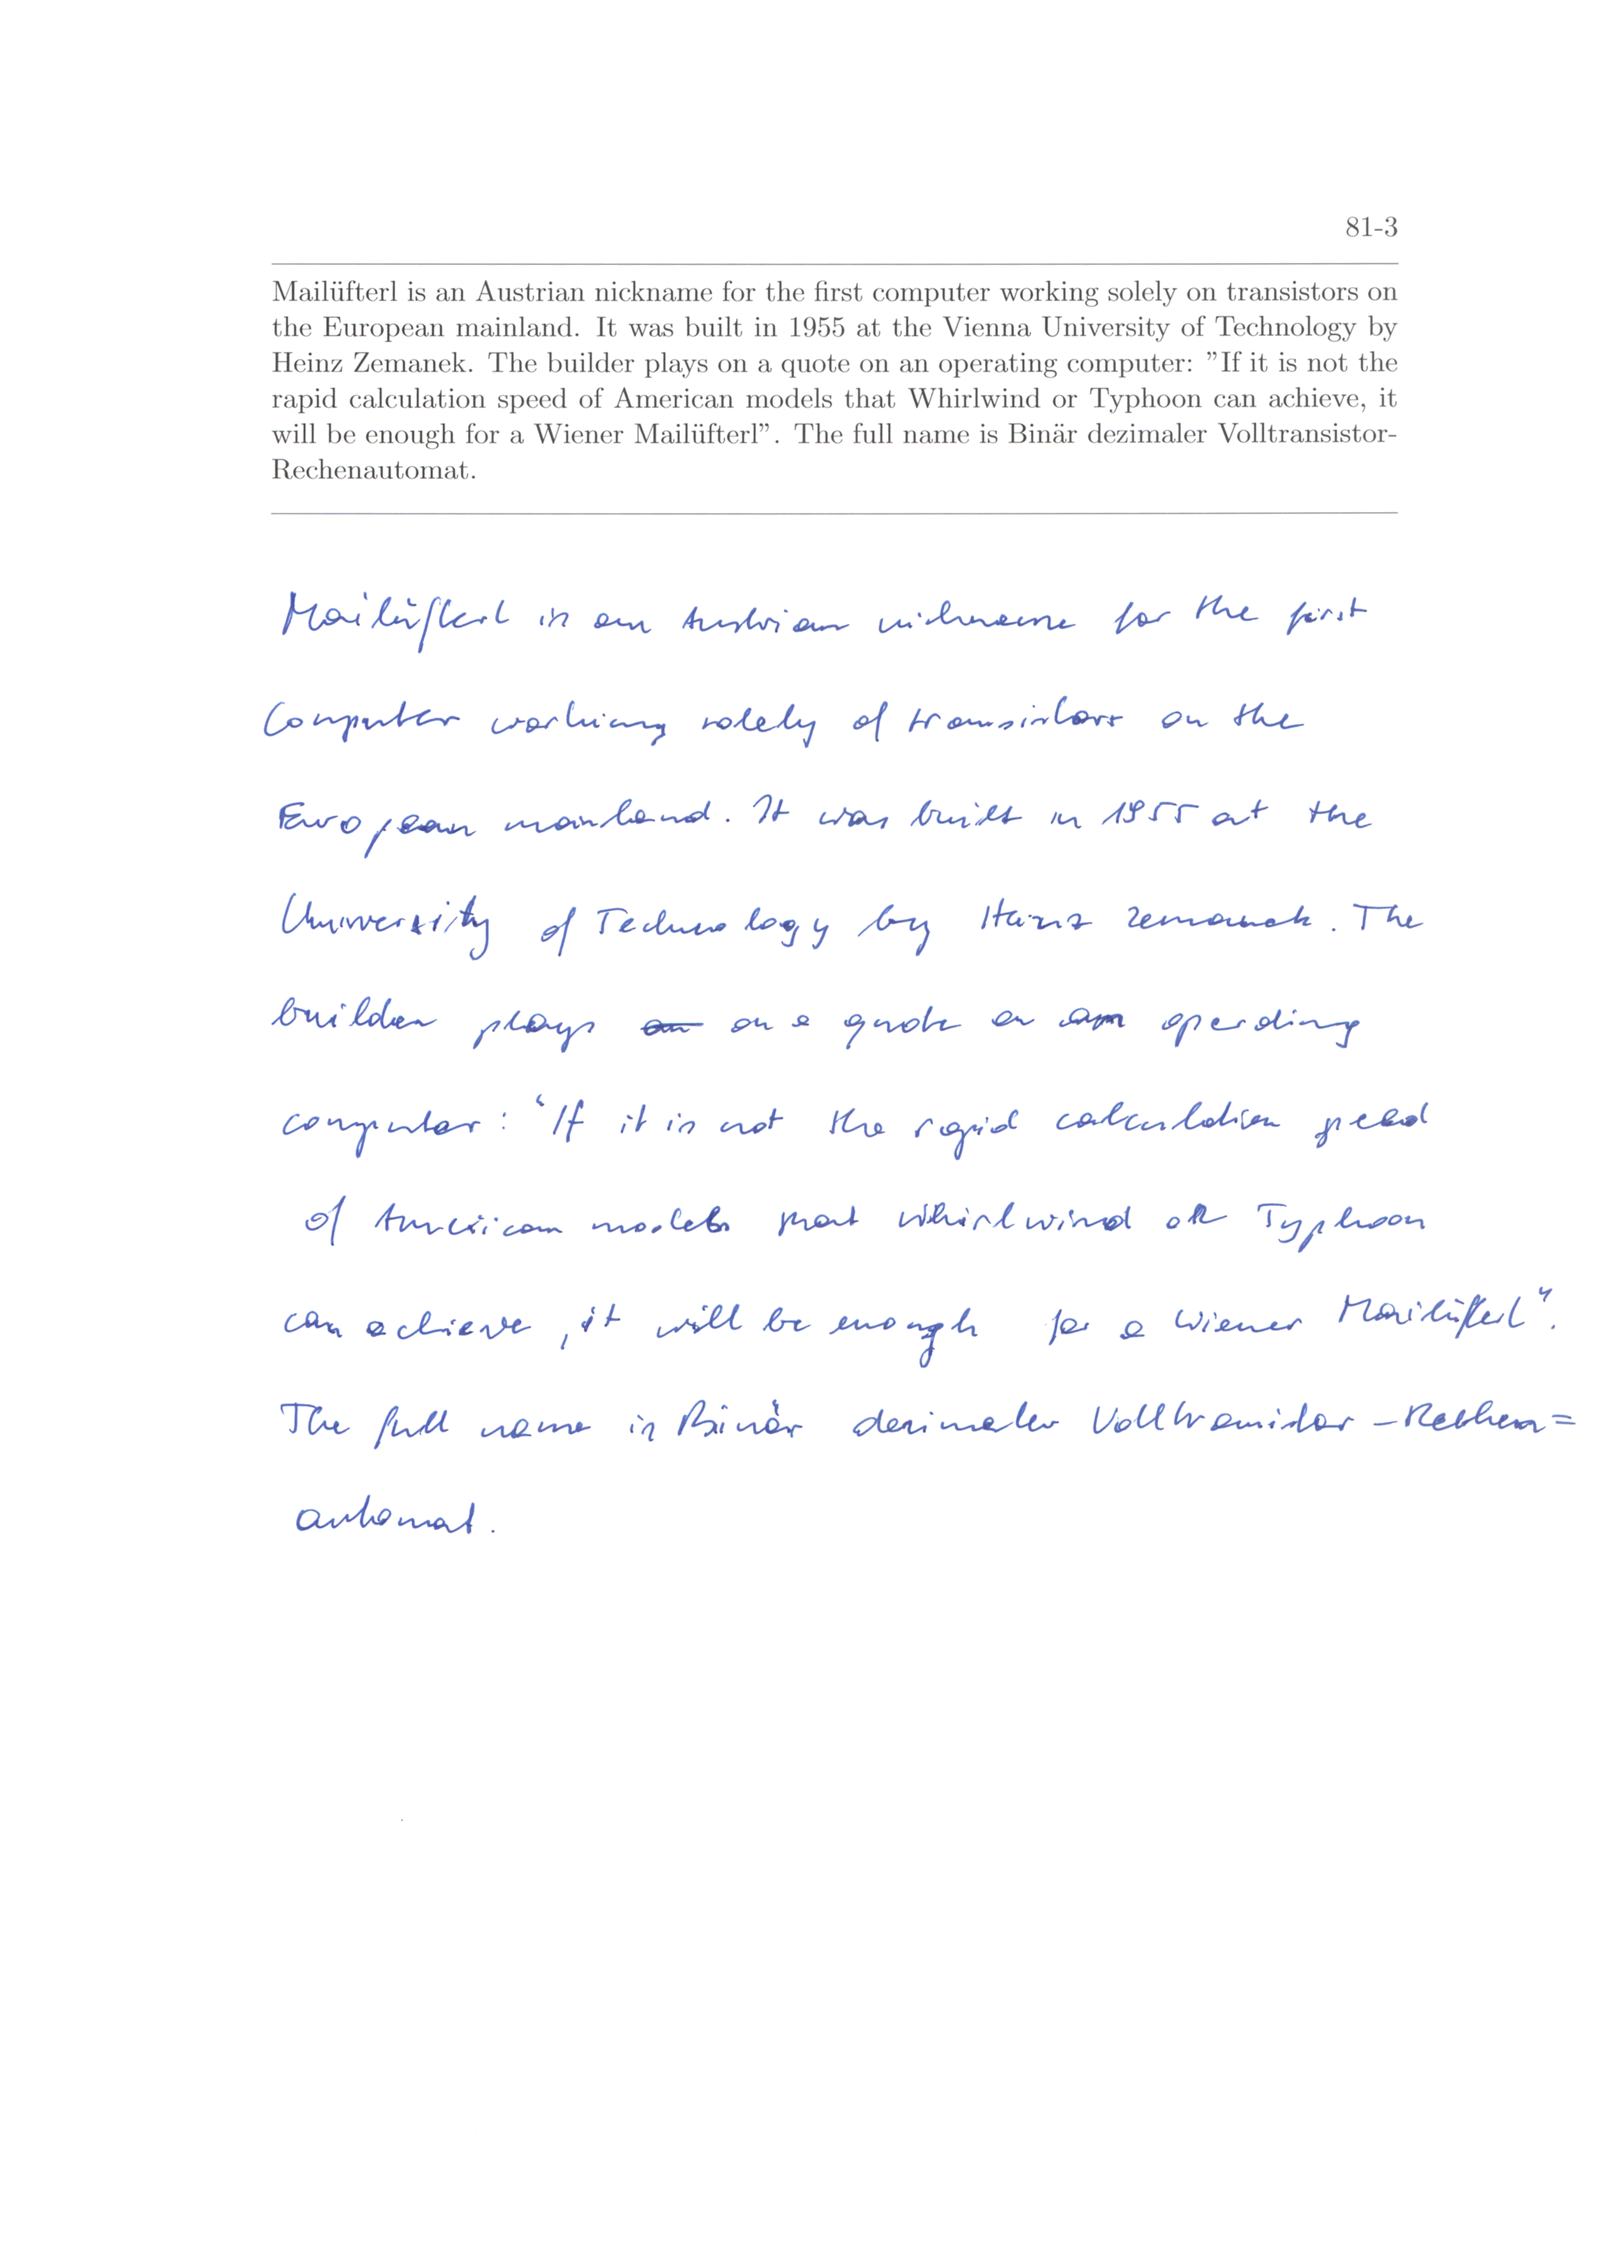 81-3
Mailüfterl is an Austrian nickname for the first computer working solely on transistors on
the European mainland. It was built in 1955 at the Vienna University of Technology by
Heinz Zemanek. The builder plays on a quote on an operating computer: ”If it is not the
rapid calculation speed of American models that Whirlwind or Typhoon can achieve, it
will be enough for a Wiener Mailüfterl”. The full name is Binär dezimaler Volltransistor-
Rechenautomat.
Mailüfterl is an Austrian nickname for the first
Computer working solely of transistors on the
European mainland. It was built in 1955 at the
University of Technology by Heinz Zemanek. The
builder plays on a quote on an operating
computer: “If it is not the rapid calculation speed
of American models that Whirlwind or Typhoon
can achieve, it will be enough for a Wiener Mailüfterl”.
The full name is Binär dezimaler Volltransistor-Rechen=
automat.